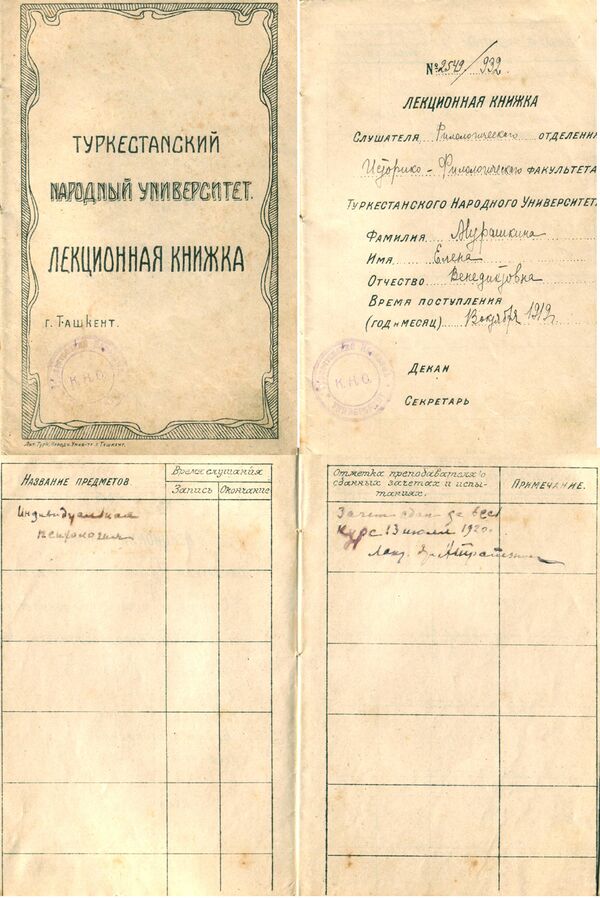 ТУРКЕСТАНСКИЙ
НАРОДНЫЙ УНИВЕРСИТЕТ.
ЛЕКЦИОННАЯ КНИЖКА
г. Ташкент.
К.Н.О.
Лит. Турк. Народн. Унив-та г. Ташкент.
№ 2549/932.
ЛЕКЦИОННАЯ КНИЖКА
Слушателя Филологического отделения
Историко-Филологического факультета
Туркестанского Народного Университета.
Фамилия Мурашкина
Имя Елена
Отчество Венедиктовна
Время поступления
(год и месяц) 13 октября 1919
К.Н.О.
Декан
Секретарь
Название предметов
Время слушания
Запись
Окончание
Индивидуальная
психология
Отметка преподавателя о
сданных зачетах и испы-
таниях.
Примечание.
Зачет сдан за весь
курс 13 июля 1920.